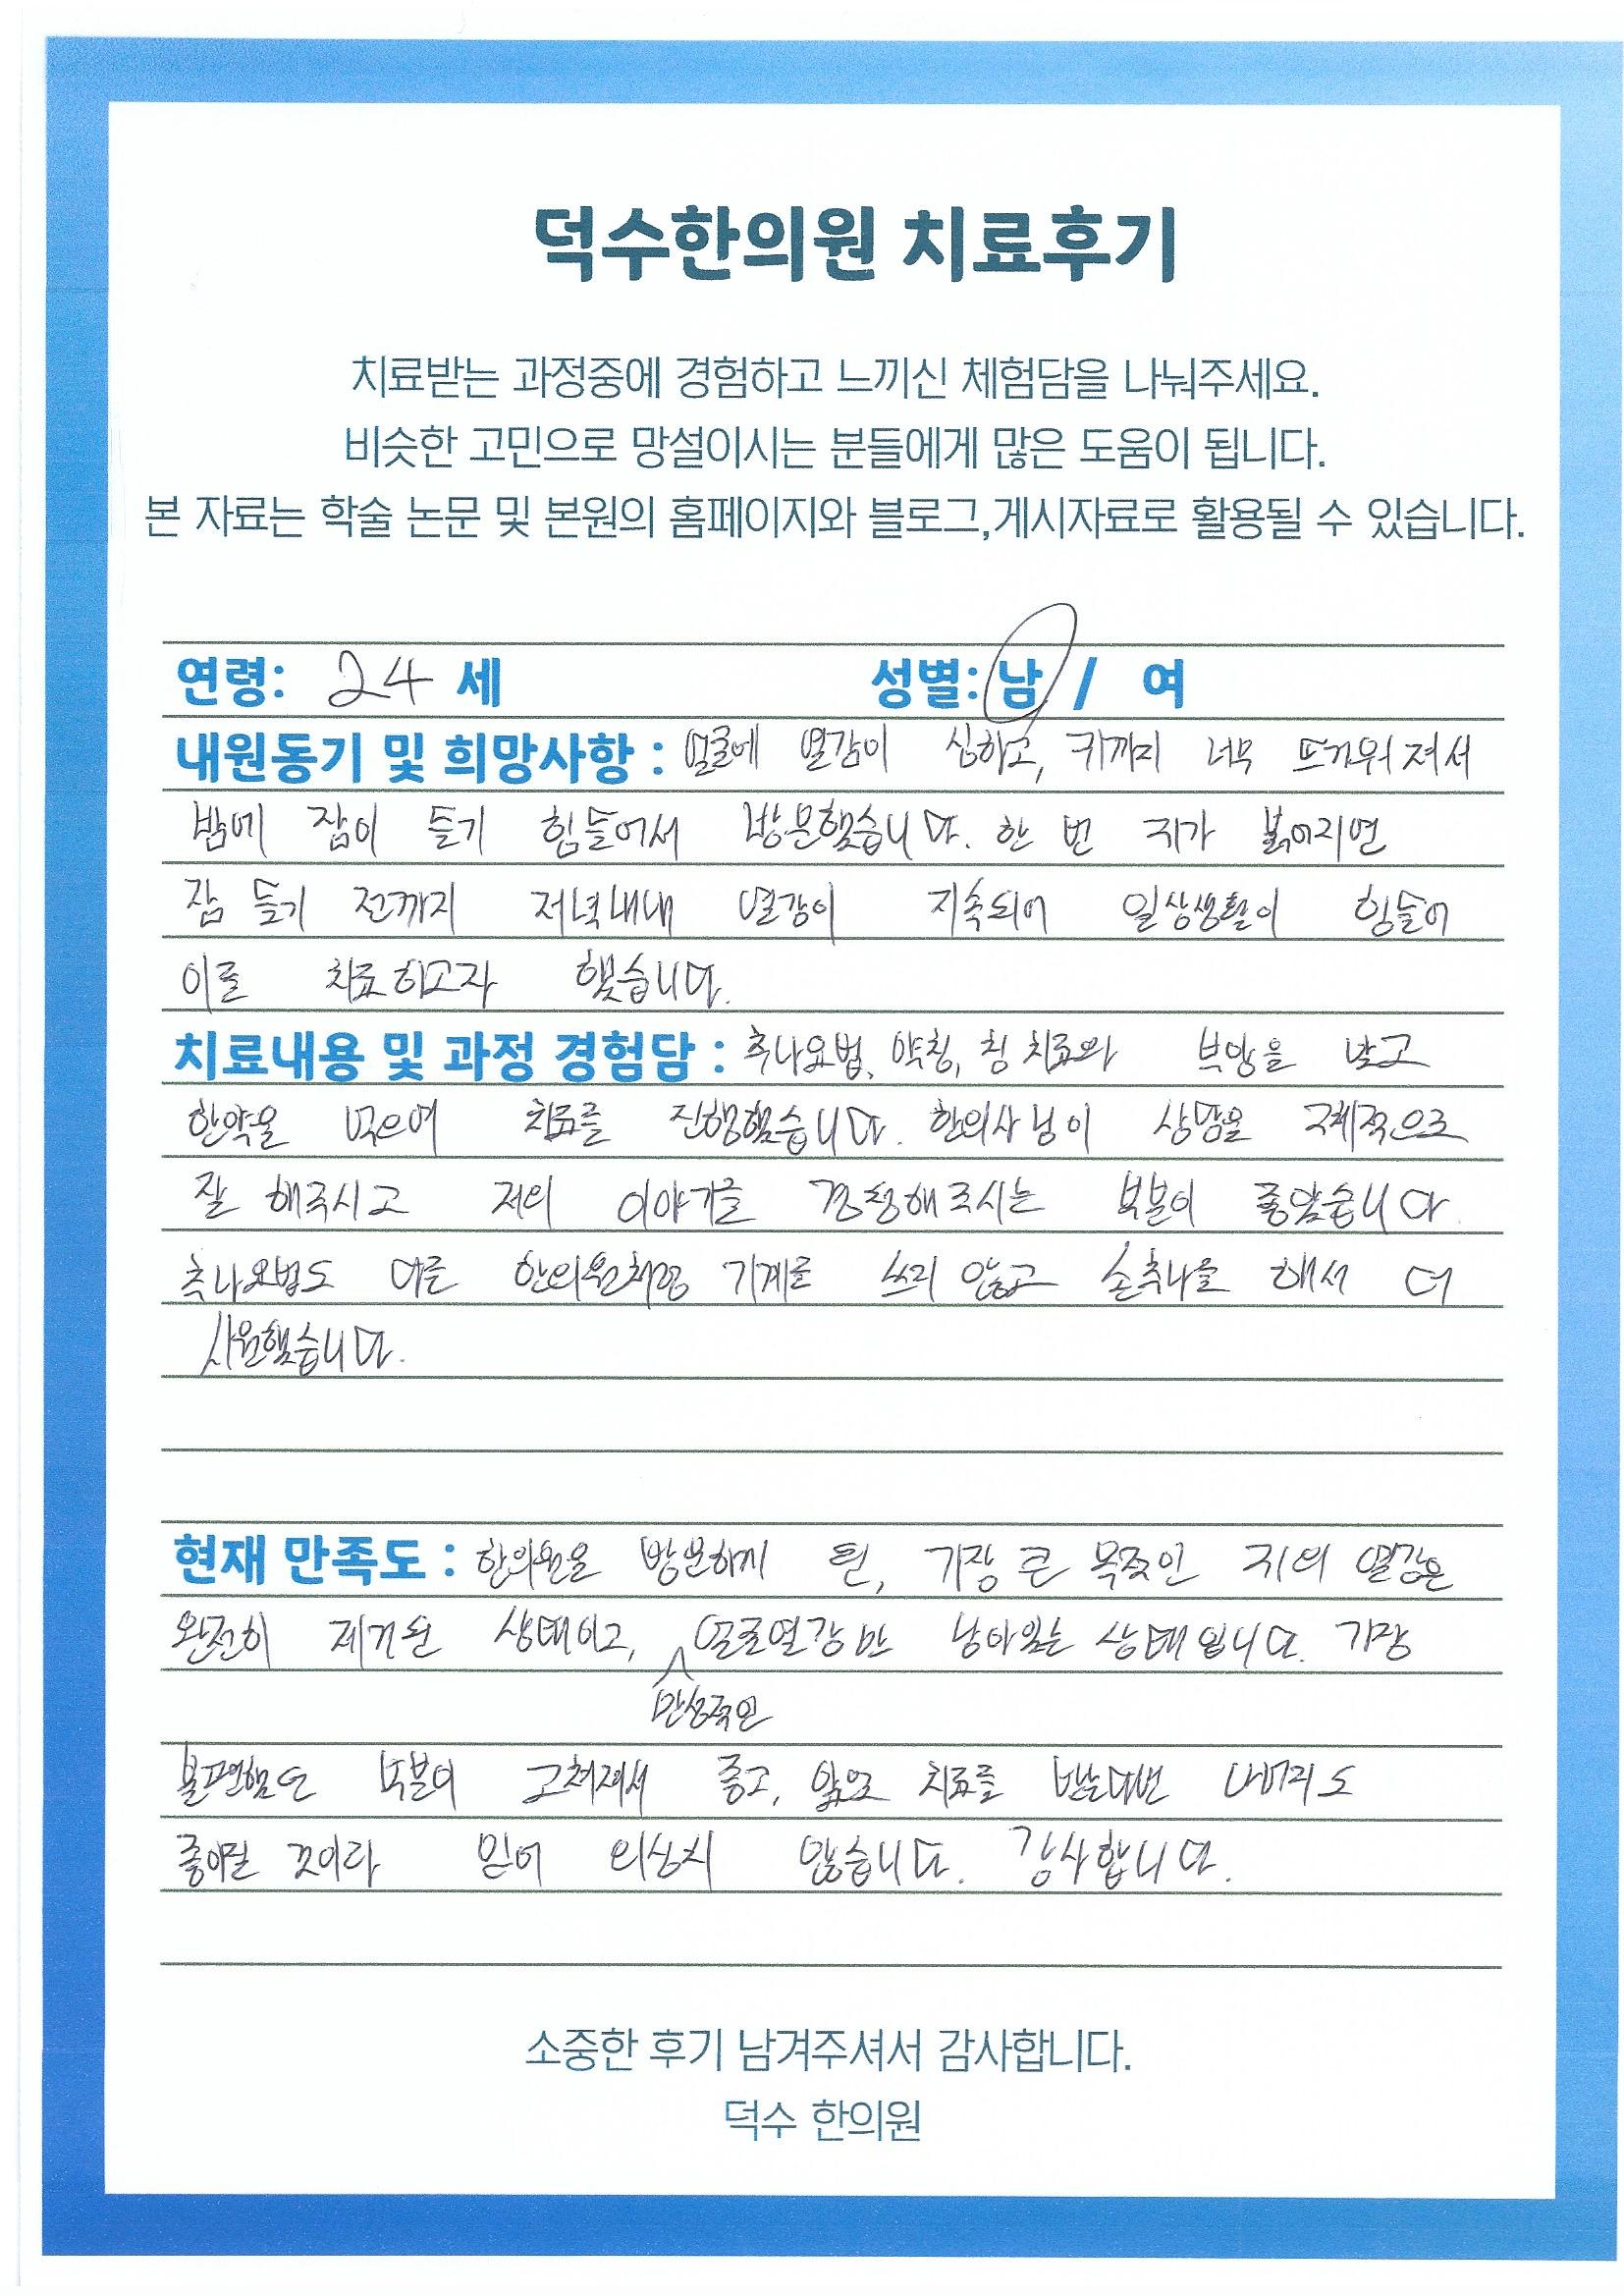 덕수한의원 치료후기
치료받는 과정중에 경험하고 느끼신 체험담을 나눠주세요.
비슷한 고민으로 망설이시는 분들에게 많은 도움이 됩니다.
본 자료는 학술 논문 및 본원의 홈페이지와 블로그,게시자료로 활용될 수 있습니다.
연령: 24 세 성별: 남 / 여
내원동기 및 희망사항 : 얼굴에 열감이 심하고, 귀까지 너무 뜨거워져서
밤에 잠이 들기 힘들어서 방문했습니다. 한 번 귀가 붉어지면
잠 들기 전까지 저녁내내 열감이 지속되어 일상생활이 힘들어
이를 치료하고자 했습니다.
치료내용 및 과정 경험담 : 추나요법, 약침, 침 치료와 부항을 받고
한약을 먹으며 치료를 진행했습니다. 한의사님이 상담을 구체적으로
잘 해주시고 저의 이야기를 경청해주시는 부분이 좋았습니다
추나요법도 다른 한의원처럼 기계를 쓰지 않고 손추나를 해서 더
시원했습니다.
현재 만족도 : 한의원을 방문하게 된, 가장 큰 목적인 귀의 열감은
완전히 제거된 상태이고, 얼굴열감만 남아있는 상태입니다. 가장
만성적인
불편했던 부분이 고쳐져서 좋고, 앞으로 치료를 받는다면 나머지도
좋아질 것이라 믿어 의심치 않습니다. 감사합니다.
소중한 후기 남겨주셔서 감사합니다.
덕수 한의원